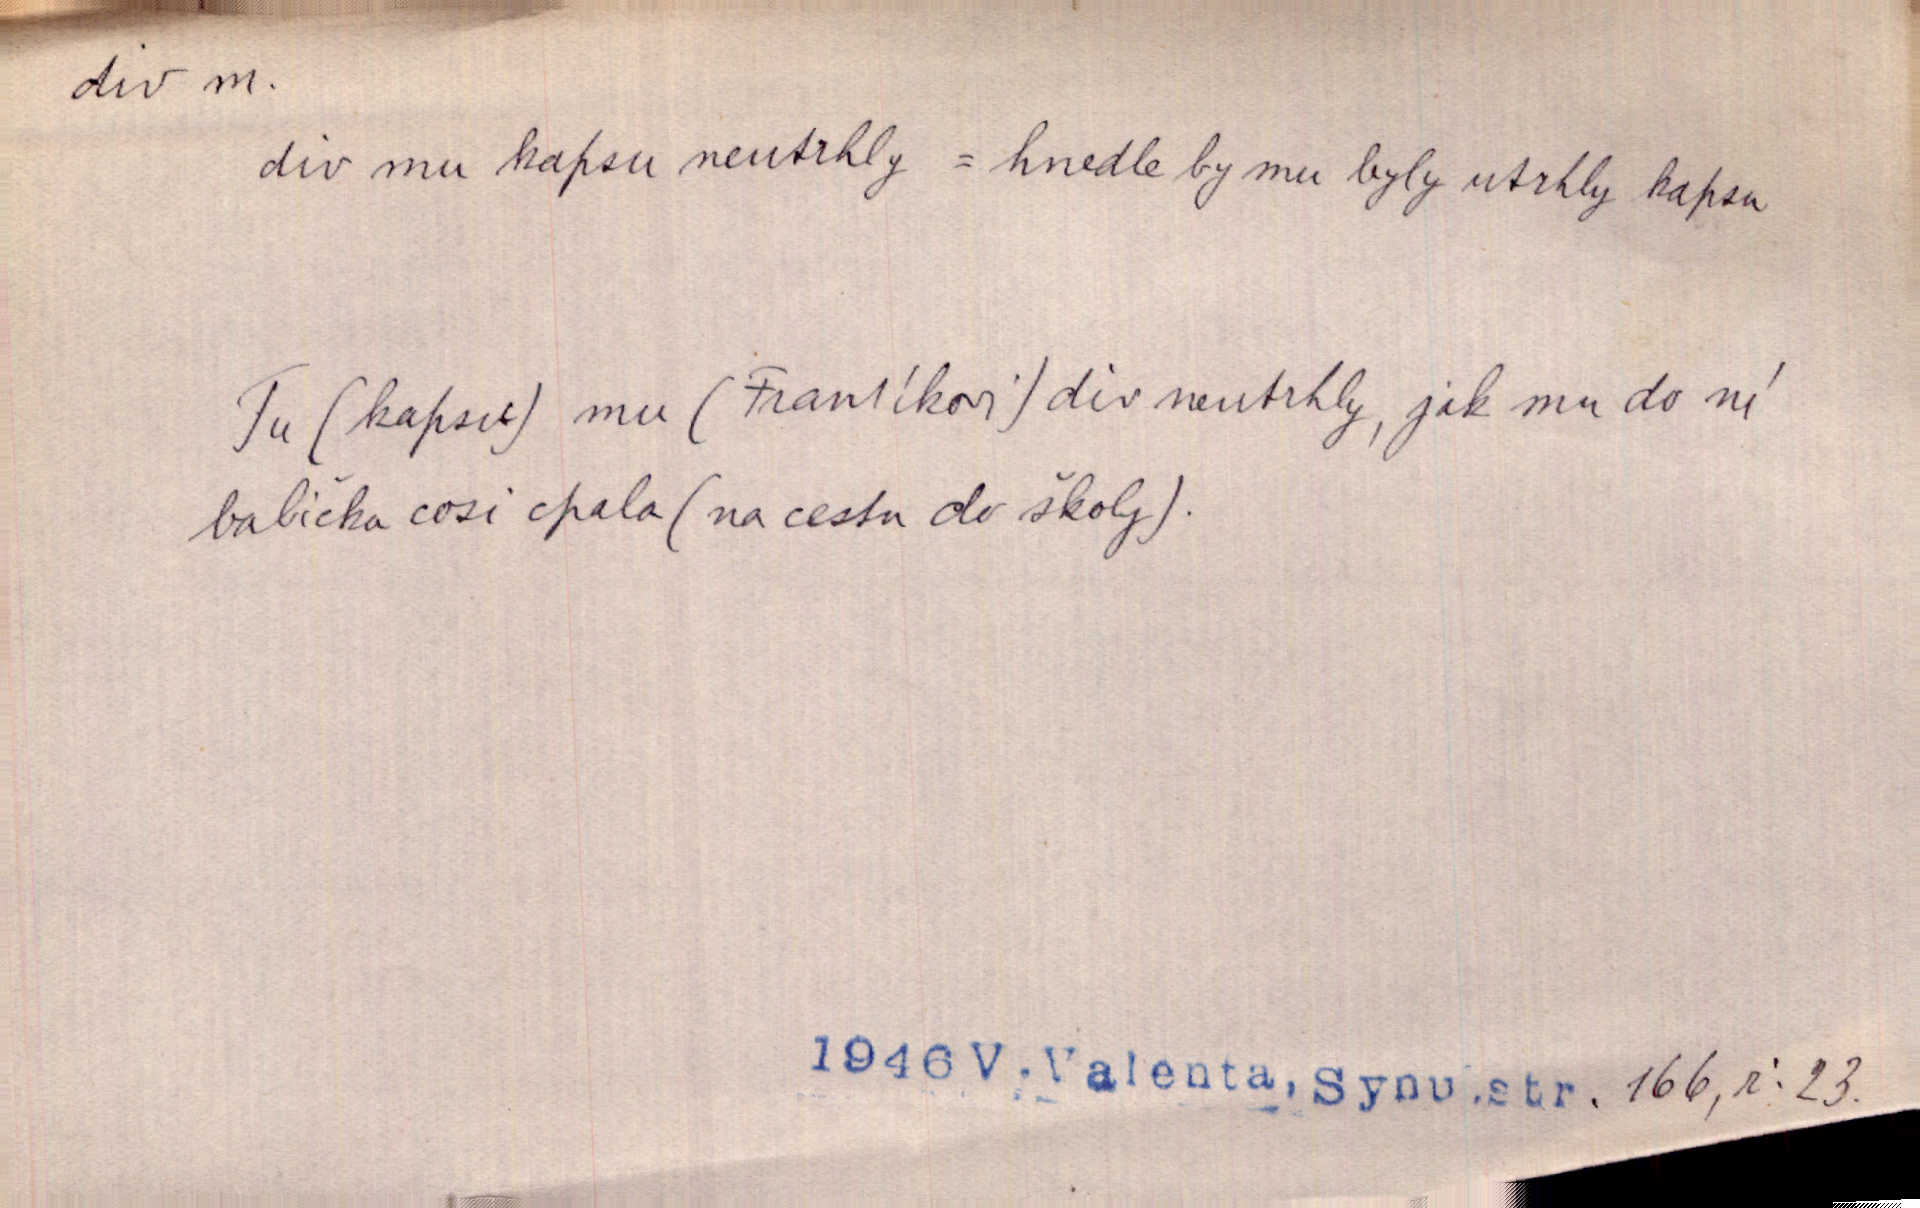 div m.
div mu kapsu neutrhly = hnedle by mu byly utrhly kapsu
Tu (kapsu) mu (Frantíkovi) div neutrhly, jak mu do ní
babička cosi cpala (na cestu do školy).
1946 V. Valenta, Synu. str. 166, ř. 23.